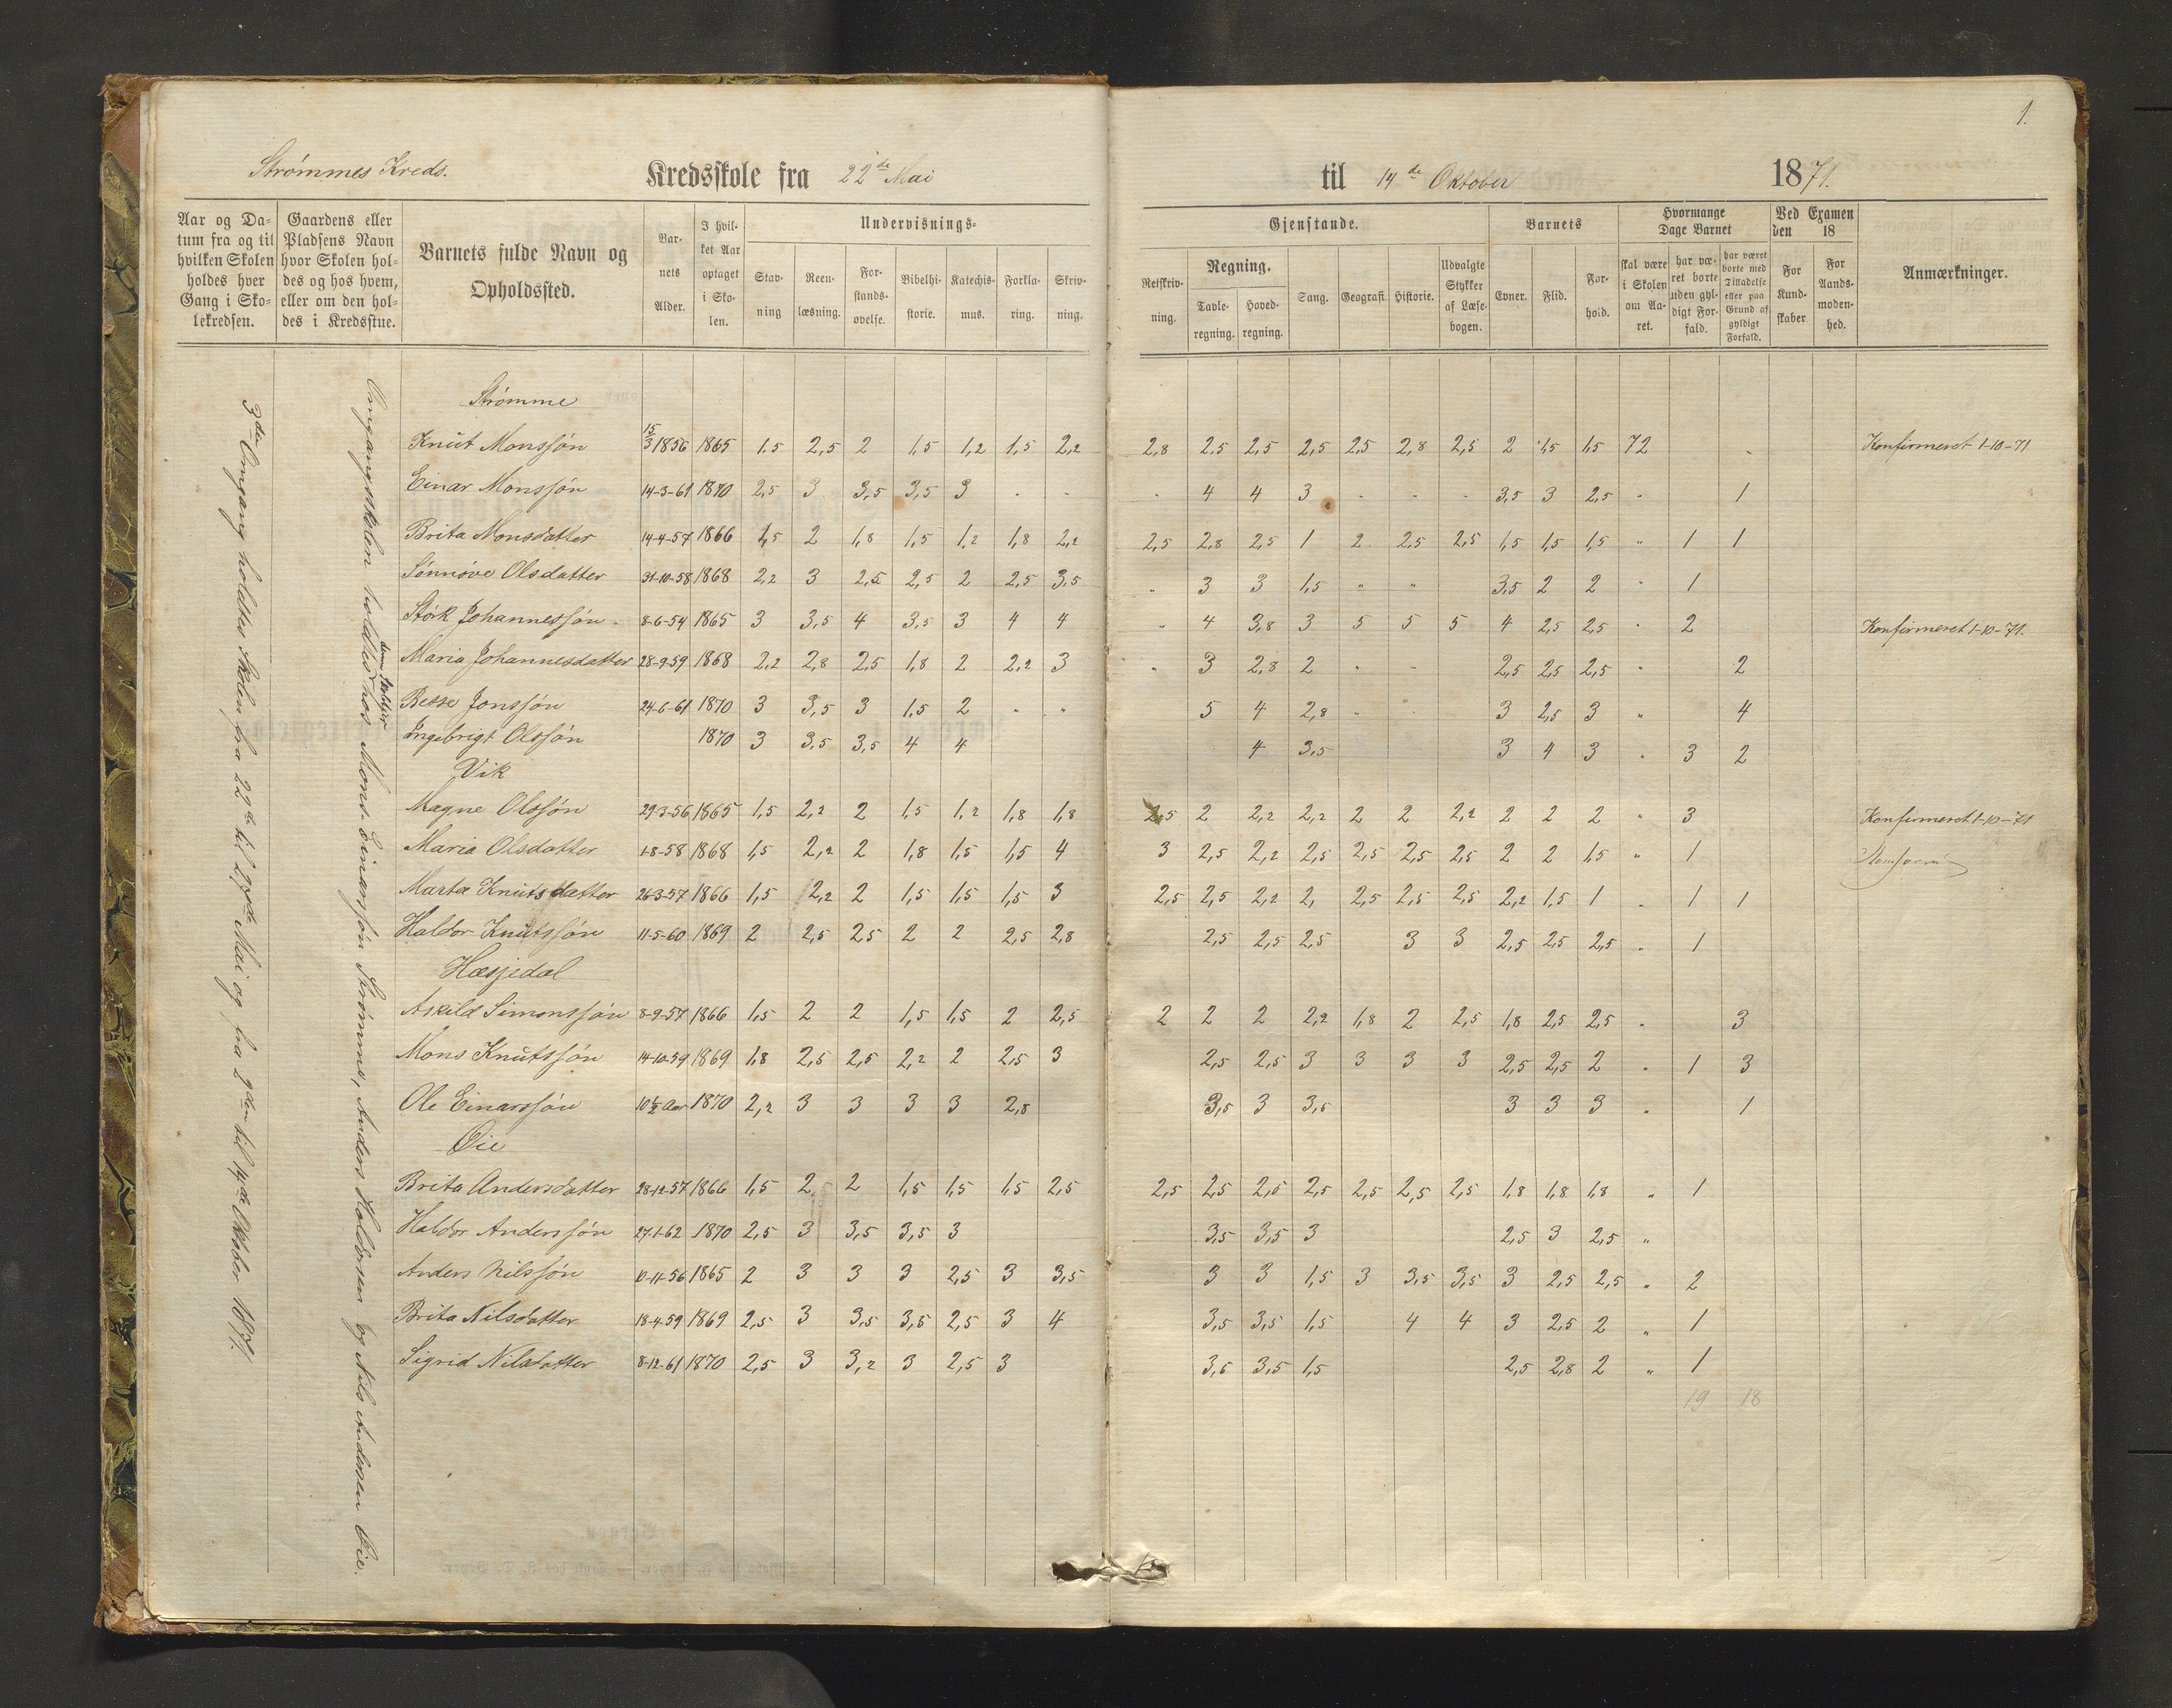 1.
Strømmes Kreds. Kredsskole fra 22de Mai til 14de Oktober 1871.
Aar og Da-tum fra og til hvilken Skolen holdes hver Gang i Sko-lekredsen.
Gaardens eller Pladsens Navn hvor Skolen hol-des og hos hvem, eller om den hol-des i Kredsstue.
Barnets fulde Navn og Opholdssted.
Bar-nets Alder.
I hvil-ket Aar optaget i Sko-len.
Undervisnings-
Stav-ning
Reen-læsning.
For-stands-øvelse.
Bibelhi-storie.
Katechis-mus.
Forkla-ring.
Skriv-ning.
Gjenstande.
Retskriv-ning.
Regning.
Tavle-regning.
Hoved-regning.
Sang.
Geografi.
Historie.
Udvalgte Stykker af Læse-bogen.
Barnets
Evner.
Flid.
For-hold.
Hvormange Dage Barnet
skal være i Skolen om Aa-ret.
har væ-ret borte uden gyl-digt For-fald.
har været borte med Tilladelse eller paa Grund af gyldigt Forfald.
Ved Examen den 18
For Kund-skaber
For Aands-moden-hed.
Anmærkninger.
3die Omgang holdtes Skolen fra 22de til 27de Mai og fra 2den til 14de Oktober 1871.
Omgangsskolen holdtes denne Skoletid hos Mons Einarssøn Strømme, Anders Haldorsen og Nils Andersen Øie.
Strømme
Knut Monssøn 15/3 1856 1865 1,5 2,5 2 1,5 1,2 1,5 2,2 2,8 2,5 2,5 2,5 2,5 2,8 2,5 2 1,5 1,5 72 Konfirmeret 1-10-71
Einar Monssøn 14-3-61 1870 2,5 3 3,5 3,5 3 - - - 4 4 3 - - - 3,5 3 2,5 " 1
Brita Monsdatter 14-4-57 1866 1,5 2 1,8 1,5 1,2 1,8 2,2 2,5 2,8 2,5 1 2 2,5 2,5 1,5 1,5 1,5 " 1 1
Sønnøve Olsdatter 31-10-58 1868 2,2 3 2,5 2,5 2 2,5 3,5 " 3 3 1,5 " " 3,5 2 2 " 1
Størk Johannessøn. 8-6-54 1865 3 3,5 4 3,5 3 4 4 " 4 3,8 3 5 5 5 4 2,5 2,5 " 2 Konfirmeret 1-10-71.
Maria Johannesdatter 28-9-59 1868 2,2 2,8 2,5 1,8 2 2,2 3 " 3 2,8 2 " " 2,5 2,5 2,5 " 2
Besse Jonssøn 24-6-61 1870 3 3,5 3 1,5 2 " " 5 4 2,8 - 3 2,5 3 " 4
Ingebrigt Olssøn 1870 3 3,5 3,5 4 4 4 3,5 3 4 3 " 3 2
Vik
Magne Olssøn 29-3-56 1865 1,5 2,2 2 1,5 1,2 1,8 1,8 2,5 2 2,2 2,2 2 2 2,2 2 2 2 " 3 Konfirmeret 1-10-71
Maria Olsdatter 1-8-58 1868 1,5 2,2 2 1,8 1,5 1,5 4 3 2,5 2,2 2,5 2,5 2,5 2,5 2 2 1,5 " 1
Marta Knutsdatter 26-3-57 1866 1,5 2,2 2 1,5 1,5 1,5 3 2,5 2,5 2,2 2, 2,5 2,5 2,5 2,2 1,5 1 " 1 1
Haldor Knutssøn 11-5-60 1869 2 2,5 2,5 2 2 2,5 2,8 2,5 2,5 2,5 3 3 2,5 2,5 2,5 " 1
Hæsjedal
Askild Simonssøn 8-9-57 1866 1,5 2 2 1,5 1,5 2 2,5 2 2 2 2,2 1,8 2 2,5 1,8 2,5 2,5 " 3
Mons Knutssøn 14-10-59 1869 1,8 2,5 2,5 2,2 2 2,5 3 2,5 2,5 3 3 3 3 2,5 2,5 2 " 1 3
Ole Einarssøn 10½ Aar 1870 2,2 3 3 3 3 2,8 3,5 3 3,5 3 3 3 " 1
Øie
Brita Andersdatter 28-12-57 1866 1,5 2 2 1,5 1,5 1,5 2,5 2,5 2,5 2,5 2,5 2,5 2,5 2,5 1,8 1,8 1,8 " 1
Haldor Anderssøn 27-1-62 1870 2,5 3 3,5 3,5 3 3,5 3,5 3 2,5 3 2,5 "
Anders Nilssøn 10-11-56 1865 2 3 3 3 2,5 3 3,5 3 3 1,5 3 3,5 3,5 3 2,5 2,5 " 2
Brita Nilsdatter 18-4-59 1869 2,5 3 3,5 3,5 2,5 3 4 3,5 3,5 1,5 4 4 3 2,5 2 " 1
Sigrid Nilsdatter 8-12-61 1870 2,5 3 3,2 3 2,5 3 3,5 3,5 1,5 2,5 2,8 2 " 1
19 18